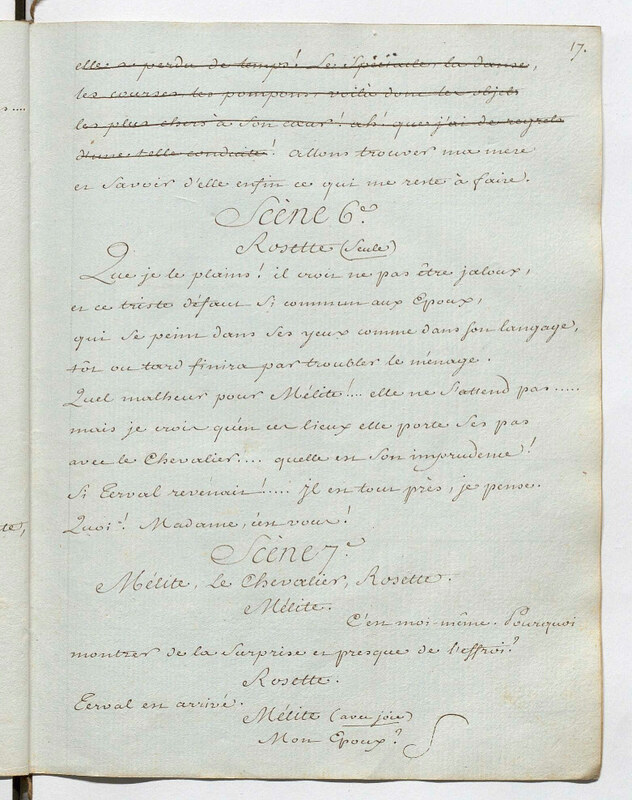 17.
elle a perdu de temps! Le Spectacle, la danse,
les courses les pompons, voilà donc les objets
les plus chers à Son cœur! ah! que j'ai de regrets
d'une telle conduite! Allons trouver ma mère
et Savoir d'elle enfin ce qui me reste à faire.
Scène 6.e
Rosette (Seule)
Que je le plains! il croit ne pas être jaloux,
et ce triste défaut Si commun aux Epoux,
qui Se peint dans Ses yeux comme dans Son langage,
tôt ou tard finira par troubler le ménage.
Quel malheur pour Mélite!... elle ne S'attend pas.....
mais je crois qu'en ces lieux elle porte Ses pas
avec le Chevalier.... quelle est Son imprudence!
Si Terval revenait!.... Il est tout près, je pense.
Quoi! Madame, c'est vous!
Scène 7.e
Mélite, Le Chevalier, Rosette.
Mélite.
C'est moi-même. Pourquoi
montrer de la Surprise et presque de l'effroi?
Rosette.
Terval est arrivé.
Mélite (avec joie)
Mon Epoux?
te,